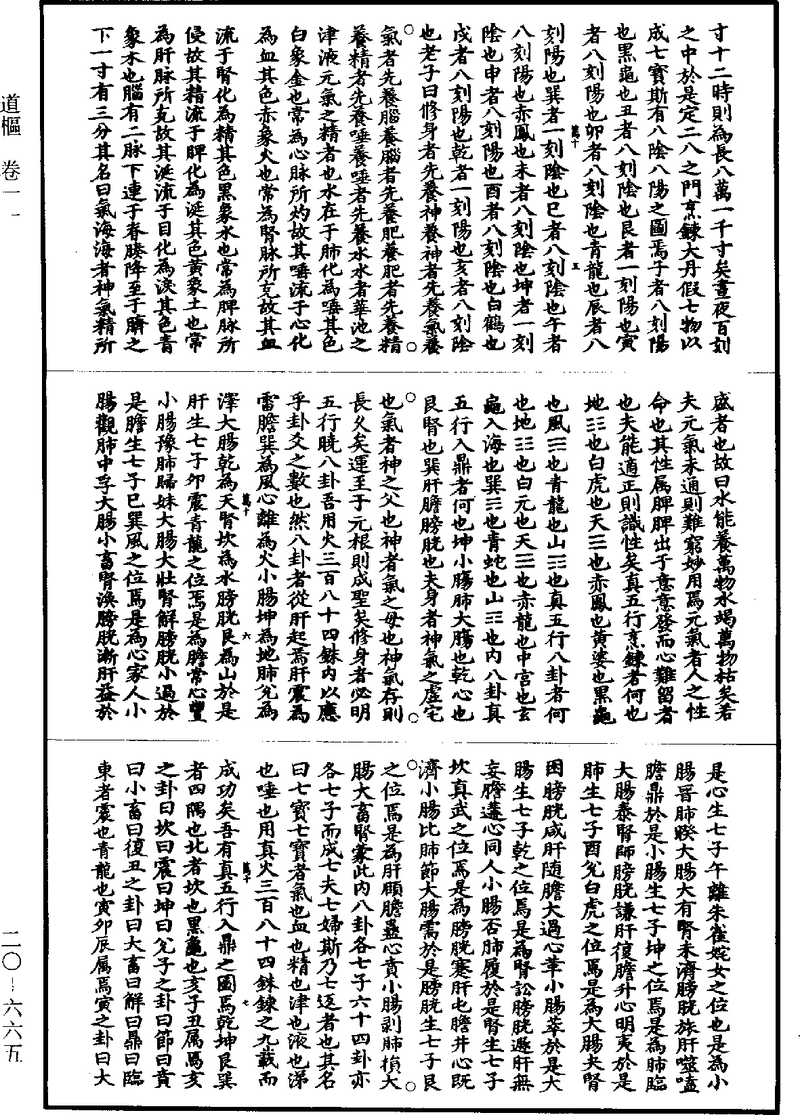 道樞 卷一 一
二〇—六六五
寸十二時則為長八萬一千寸矣晝夜百刻
之中於是定二八之門烹鍊大丹假七物以
成七寶斯有八陰八陽之圖焉子者八刻陽
也黑龜也丑者八刻陰也艮者一刻陽也寅
者八刻陽也卯者八刻陰也青龍也辰者八
刻陽也巽者一刻陰也巳者八刻陰也午者
八刻陽也赤鳳也未者八刻陰也坤者一刻
陰也申者八刻陽也酉者八刻陰也白鶴也
戌者八刻陽也乾者一刻陽也亥者八刻陰
也老子曰修身者先養神養神者先養氣養
氣者先養腦養腦者先養肥養肥者先養精
養精者先養唾養唾者先養水水者華池之
津液元氣之精者也水在于肺化為唾其色
白象金也常為心脉所灼故其唾流于心化
為血其色赤象火也常為腎脉所克故其血
流于腎化為精其色黑象水也常為脾脉所
侵故其精流于脾化為涎其色黃象土也常
為肝脉所克故其涎流于目化為淚其色青
象木也腦有二脉下連于脊膂降至于臍之
下一寸有三分其名曰氣海海者神氣精所
盛者也故曰水能養萬物水竭萬物枯矣若
夫元氣未通則難窮妙用焉元氣者人之性
命也其性屬脾脾出于意意發而心難留者
也夫能適正則識性矣真五行烹鍊者何也
地☷也白虎也天☰也赤鳳也黃婆也黑龜
也風☴也青龍也山☶也真五行八卦者何
也地☷也白元也天☰也赤龍也中宮也玄
龜入海也巽☴也青蛇也山☶也內八卦真
五行入鼎者何也坤小腸肺大腸也乾心也
艮腎也巽肝膽膀胱也夫身者神氣之虛宅
也氣者神之父也神者氣之母也神氣存則
長久矣運至于元根則成聖矣修身者必明
五行曉八卦吾用火三百八十四銖內以應
乎卦爻之數也然八卦者從肝起焉肝震為
雷膽巽為風心離為火小腸坤為地肺兌為
澤大腸乾為天腎坎為水膀胱艮為山於是
肝生七子卯震青龍之位焉是為膽常心豐
小腸豫肺歸妹大腸大壯腎解膀胱小過於
是膽生七子巳巽風之位焉是為心家人小
腸觀肺中孚大腸小畜腎渙膀胱漸肝益於
是心生七子午離朱雀姹女之位也是為小
腸晉肺睽大腸大有腎未濟膀胱旅肝噬嗑
膽鼎於是小腸生七子坤之位焉是為肺臨
大腸泰腎師膀胱謙肝復膽升心明夷於是
肺生七子酉兌白虎之位焉是為大腸夬腎
困膀胱咸肝隨膽大過心革小腸萃於是大
腸生七子乾之位焉是為腎訟膀胱遯肝無
妄膽遘心同人小腸否肺履於是腎生七子
坎真武之位焉是為膀胱蹇肝屯膽井心既
濟小腸比肺節大腸需於是膀胱生七子艮
之位焉是為肝頤膽蠱心賁小腸剝肺損大
腸大畜腎蒙此內八卦各七子六十四卦亦
各七子而成七夫七婦斯乃七返者也其名
曰七寶七寶者氣也血也精也津也液也涕
也唾也用真火三百八十四銖鍊之九載而
成功矣吾有真五行入鼎之圖焉乾坤艮巽
者四隅也北者坎也黑龜也亥子丑屬焉亥
之卦曰坎曰震曰坤曰兌子之卦曰節曰賁
曰小畜曰復丑之卦曰大畜曰解曰鼎曰臨
東者震也青龍也寅卯辰屬焉寅之卦曰大
萬十
五
萬十
六
萬十
七